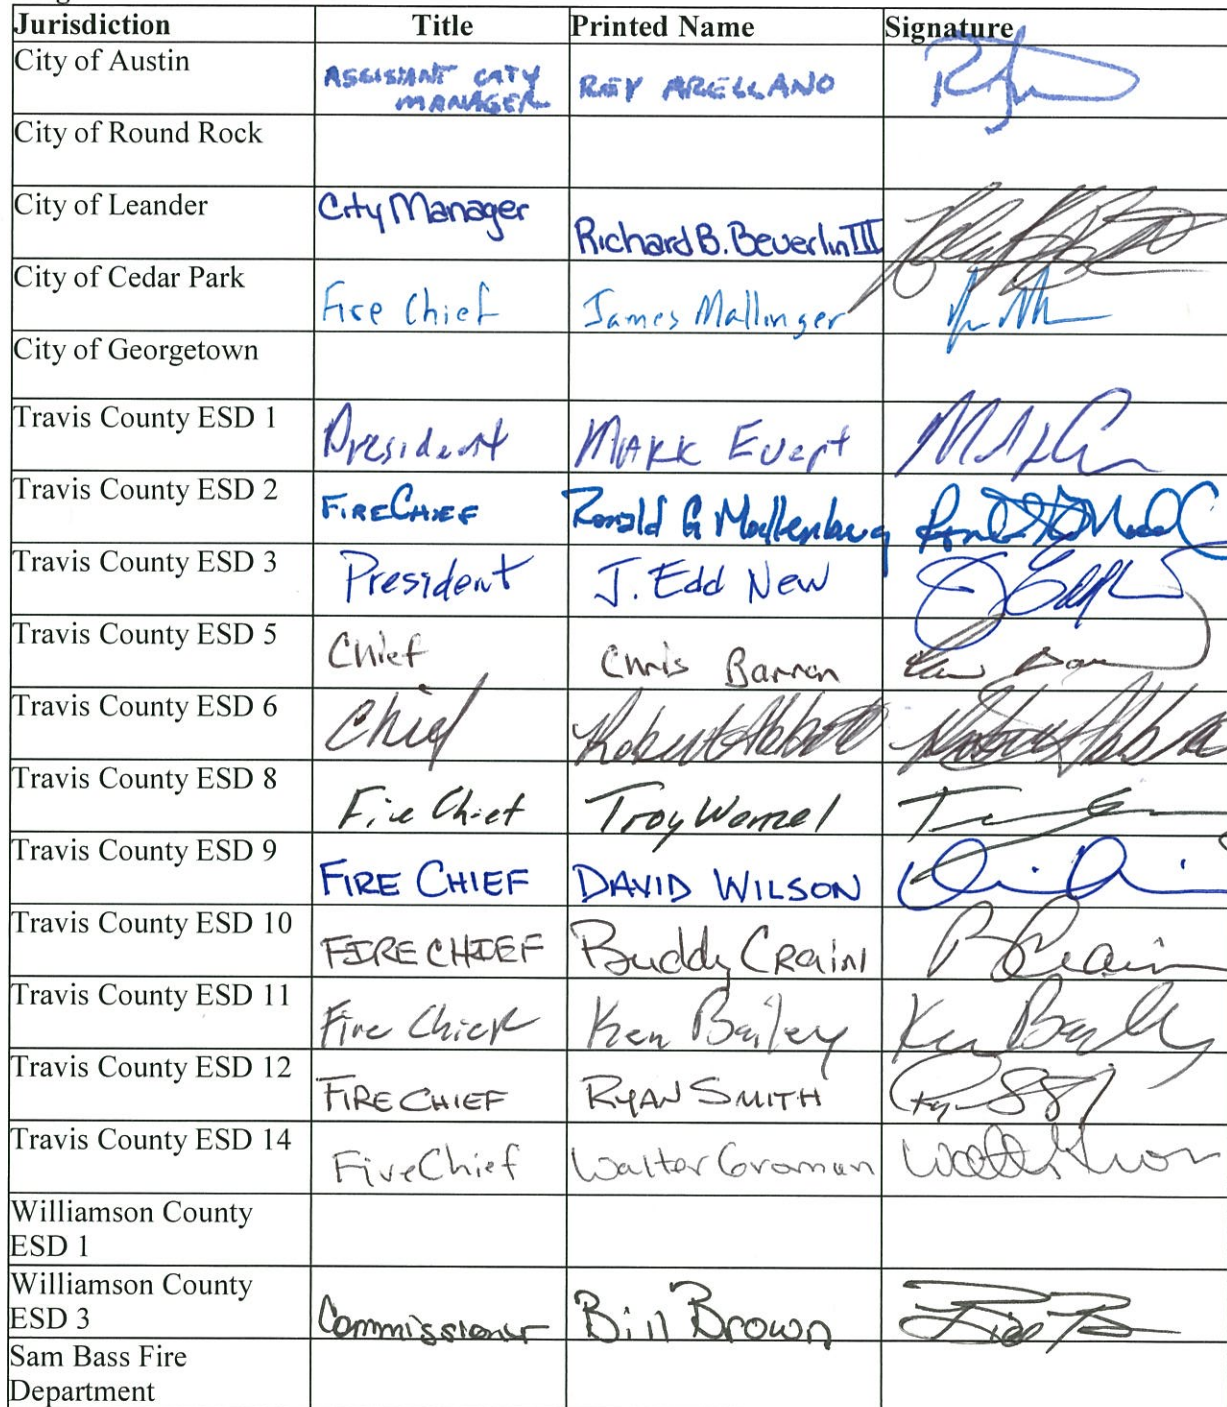 Jurisdiction Title Printed Name Signature
City of Austin ASSISTANT CITY MANAGER REY ARELLANO
City of Round Rock
City of Leander City Manager Richard B. Beverlin III
City of Cedar Park Fire Chief James Mallinger
City of Georgetown
Travis County ESD 1 President MARK Evert
Travis County ESD 2 FIRE CHIEF Ronald G Moellenberg
Travis County ESD 3 President J. Edd New
Travis County ESD 5 Chief Chris Barron
Travis County ESD 6 Chief Robert Abbott
Travis County ESD 8 Fire Chief Troy Wenzel
Travis County ESD 9 FIRE CHIEF DAVID WILSON
Travis County ESD 10 FIRE CHIEF Buddy CRain
Travis County ESD 11 Fire Chief Ken Bailey Ken Bailey
Travis County ESD 12 FIRE CHIEF RYAN SMITH
Travis County ESD 14 Fire Chief Walter Groman
Williamson County
ESD 1
Williamson County
ESD 3 Commissioner Bill Brown
Sam Bass Fire
Department